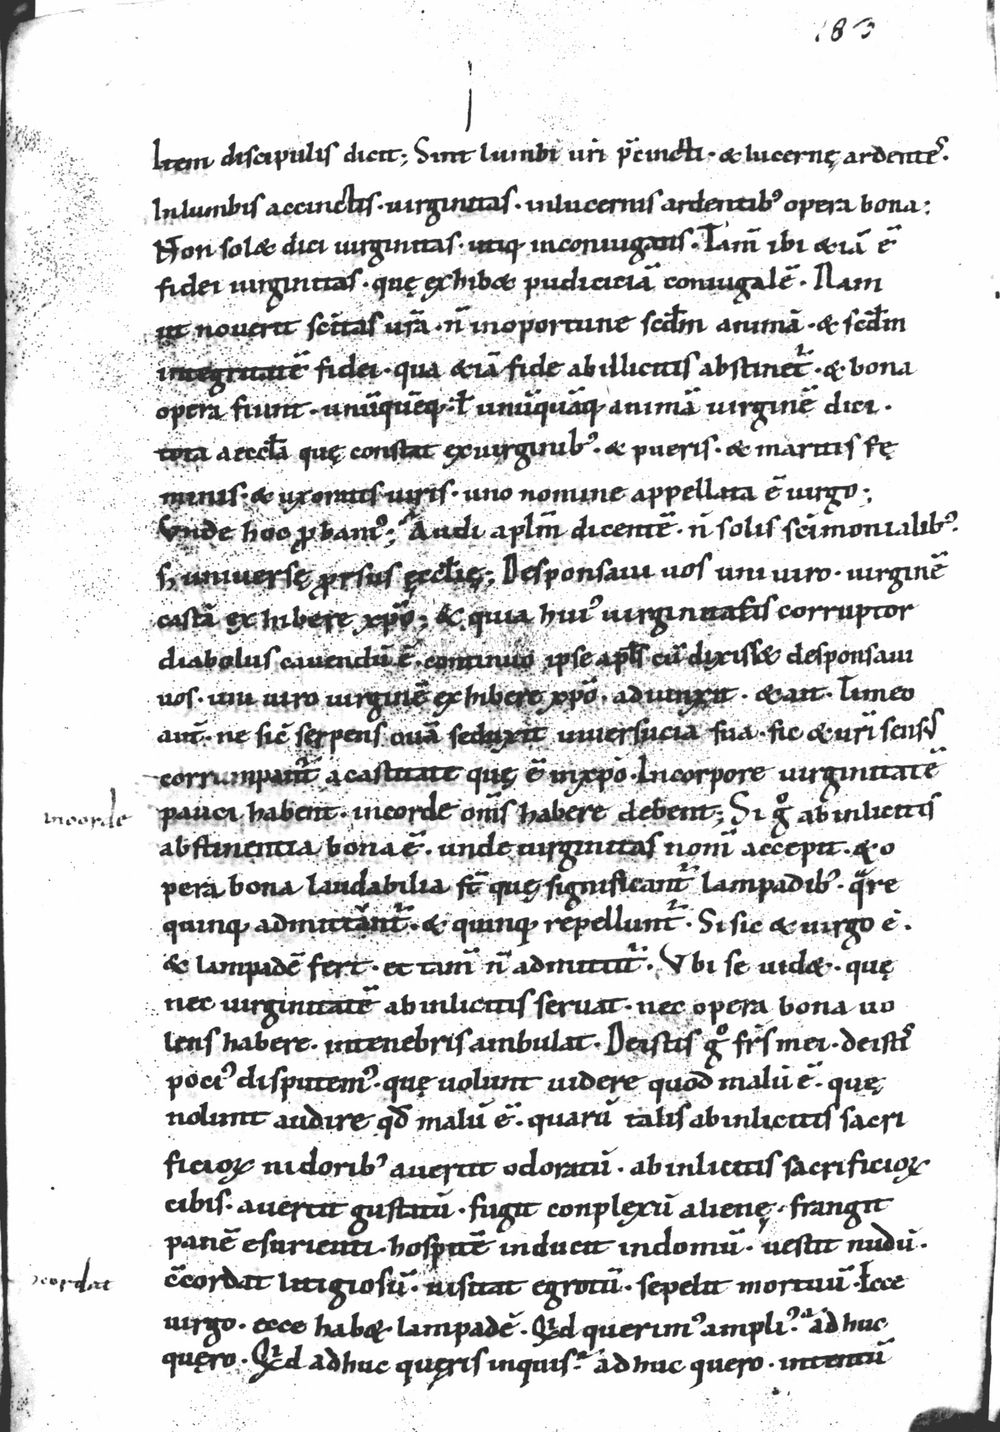 183
Item discipulis dicit; Sint lumbi uri p̄cincti · & lucernę ardentes̄.
Inlumbis accinctis · uirginitas · inlucernis ardentib; opera bona:
Non sol& dici uirginitas · utiq; inconiugatis · Tam̄ ibi &iā ē
fidei uirginitas · quę exhib& pudiciciā coniugalē · Nam
ut nouerit sc̄itas ur̄a · n̄ inoportune scd̄m animā · & scd̄m
integritatē fidei · qua &iā fide abillicitis abstinet̄ · & bona
opera fiunt · unūquēq; · ł unūquāq; animā uirginē dici ·
tota aeccl̄a quę constat exuirginib; · & pueris · & maritis fę
minis · & uxoratis uiris · uno nomine appellata ē uirgo;
Vnde hoc p̄bam᾽; Audi apl̄m dicentē · n̄ solis sc̄imonialib᾽.
s; uniuersę prorsus ęccl̄ię; Desponsaui uos uni uiro · uirginē
castā exhibere xp̄o; & quia hui᾽ uirginitatis corruptor
diabolus cauendū ē · continuo ipse apl̄s cū dixiss& desponsaui
uos · uni uiro uirginē exhibere xp̄o · adiunxit · & ait · Timeo
aut̄ · ne sic̄ serpens euā seduxit uuersucia sua · sic & uri sens᾽
corrumpant̄ acastitate quę ē inxp̄o · Incorpore uirginitatē
incorde
pauci habent · incorde om̄s habere debent; Si gͦ abinlicitis
abstinentia bona ē · unde uirginitas nom̄ accepit · & o
pera bona laudabilia st̄ quę significant̄ lampadib᾽ · q̄re
quinq; admittant̄ · & quinq; repellunt̄ · Si sic & uirgo ē ·
& lampadē fert · et tam̄ n̄ admittit̄ · Vbi se uid& · quę
nec uirginitatē abinlicitis seruat · nec opera bona uo
lens habere · intenebris ambulat · Deistis gͦ fr̄s mei · deistis
poci᾽ disputem᾽ · quę uolunt uidere quod malū ē · quę
nolunt audire qd̄ malū ē · quarū talis abinlicitis sacri
ficioꝝ nidorib᾽ auertit odoratū · abinlicitis sacrificioꝝ
cibis · auertit gustatū · fugit conplexū alienę · frangit
panē esurienti · hospitē inducit indomū · uestit nudū ·
cordat
c̄cordat litigiosū · uisitat egrotū · sepelit mortuū · Ecce
uirgo · ecce hab& · lampadē · Qid querim᾽ ampli᾽ · adhuc
quęro · Qid adhuc quęris inquis · adhuc quero · intentū